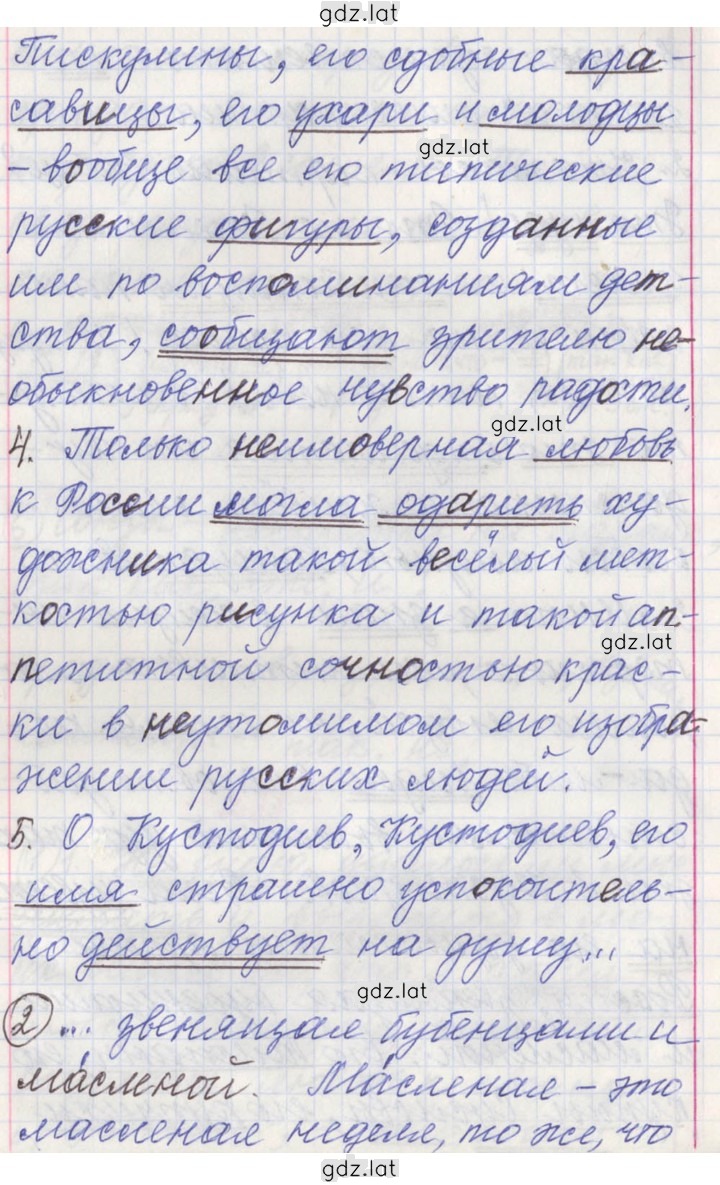 gdz.lat
Пискулины, его сдобные кра-
савицы, его ухари и молодцы
gdz.lat
- вообще все его типические
русские фигуры, созданные
им по воспоминаниям дет-
ства, сообщают зрителю не-
обыкновенное чувство радости.
gdz.lat
4. Только неимоверная любовь
к России могла одарить ху-
дожника такой весёлой мет-
костью рисунка и такой ап-
gdz.lat
петитной сочностью крас-
ки в неутомимом его изобра-
жении русских людей.
5. О Кустодиев, Кустодиев, его
имя страшно успокоитель-
но действует на душу...
gdz.lat
2 ... звенящая бубенцами и
масленой. Масленая - это
масленая неделя, то же, что
gdz.lat